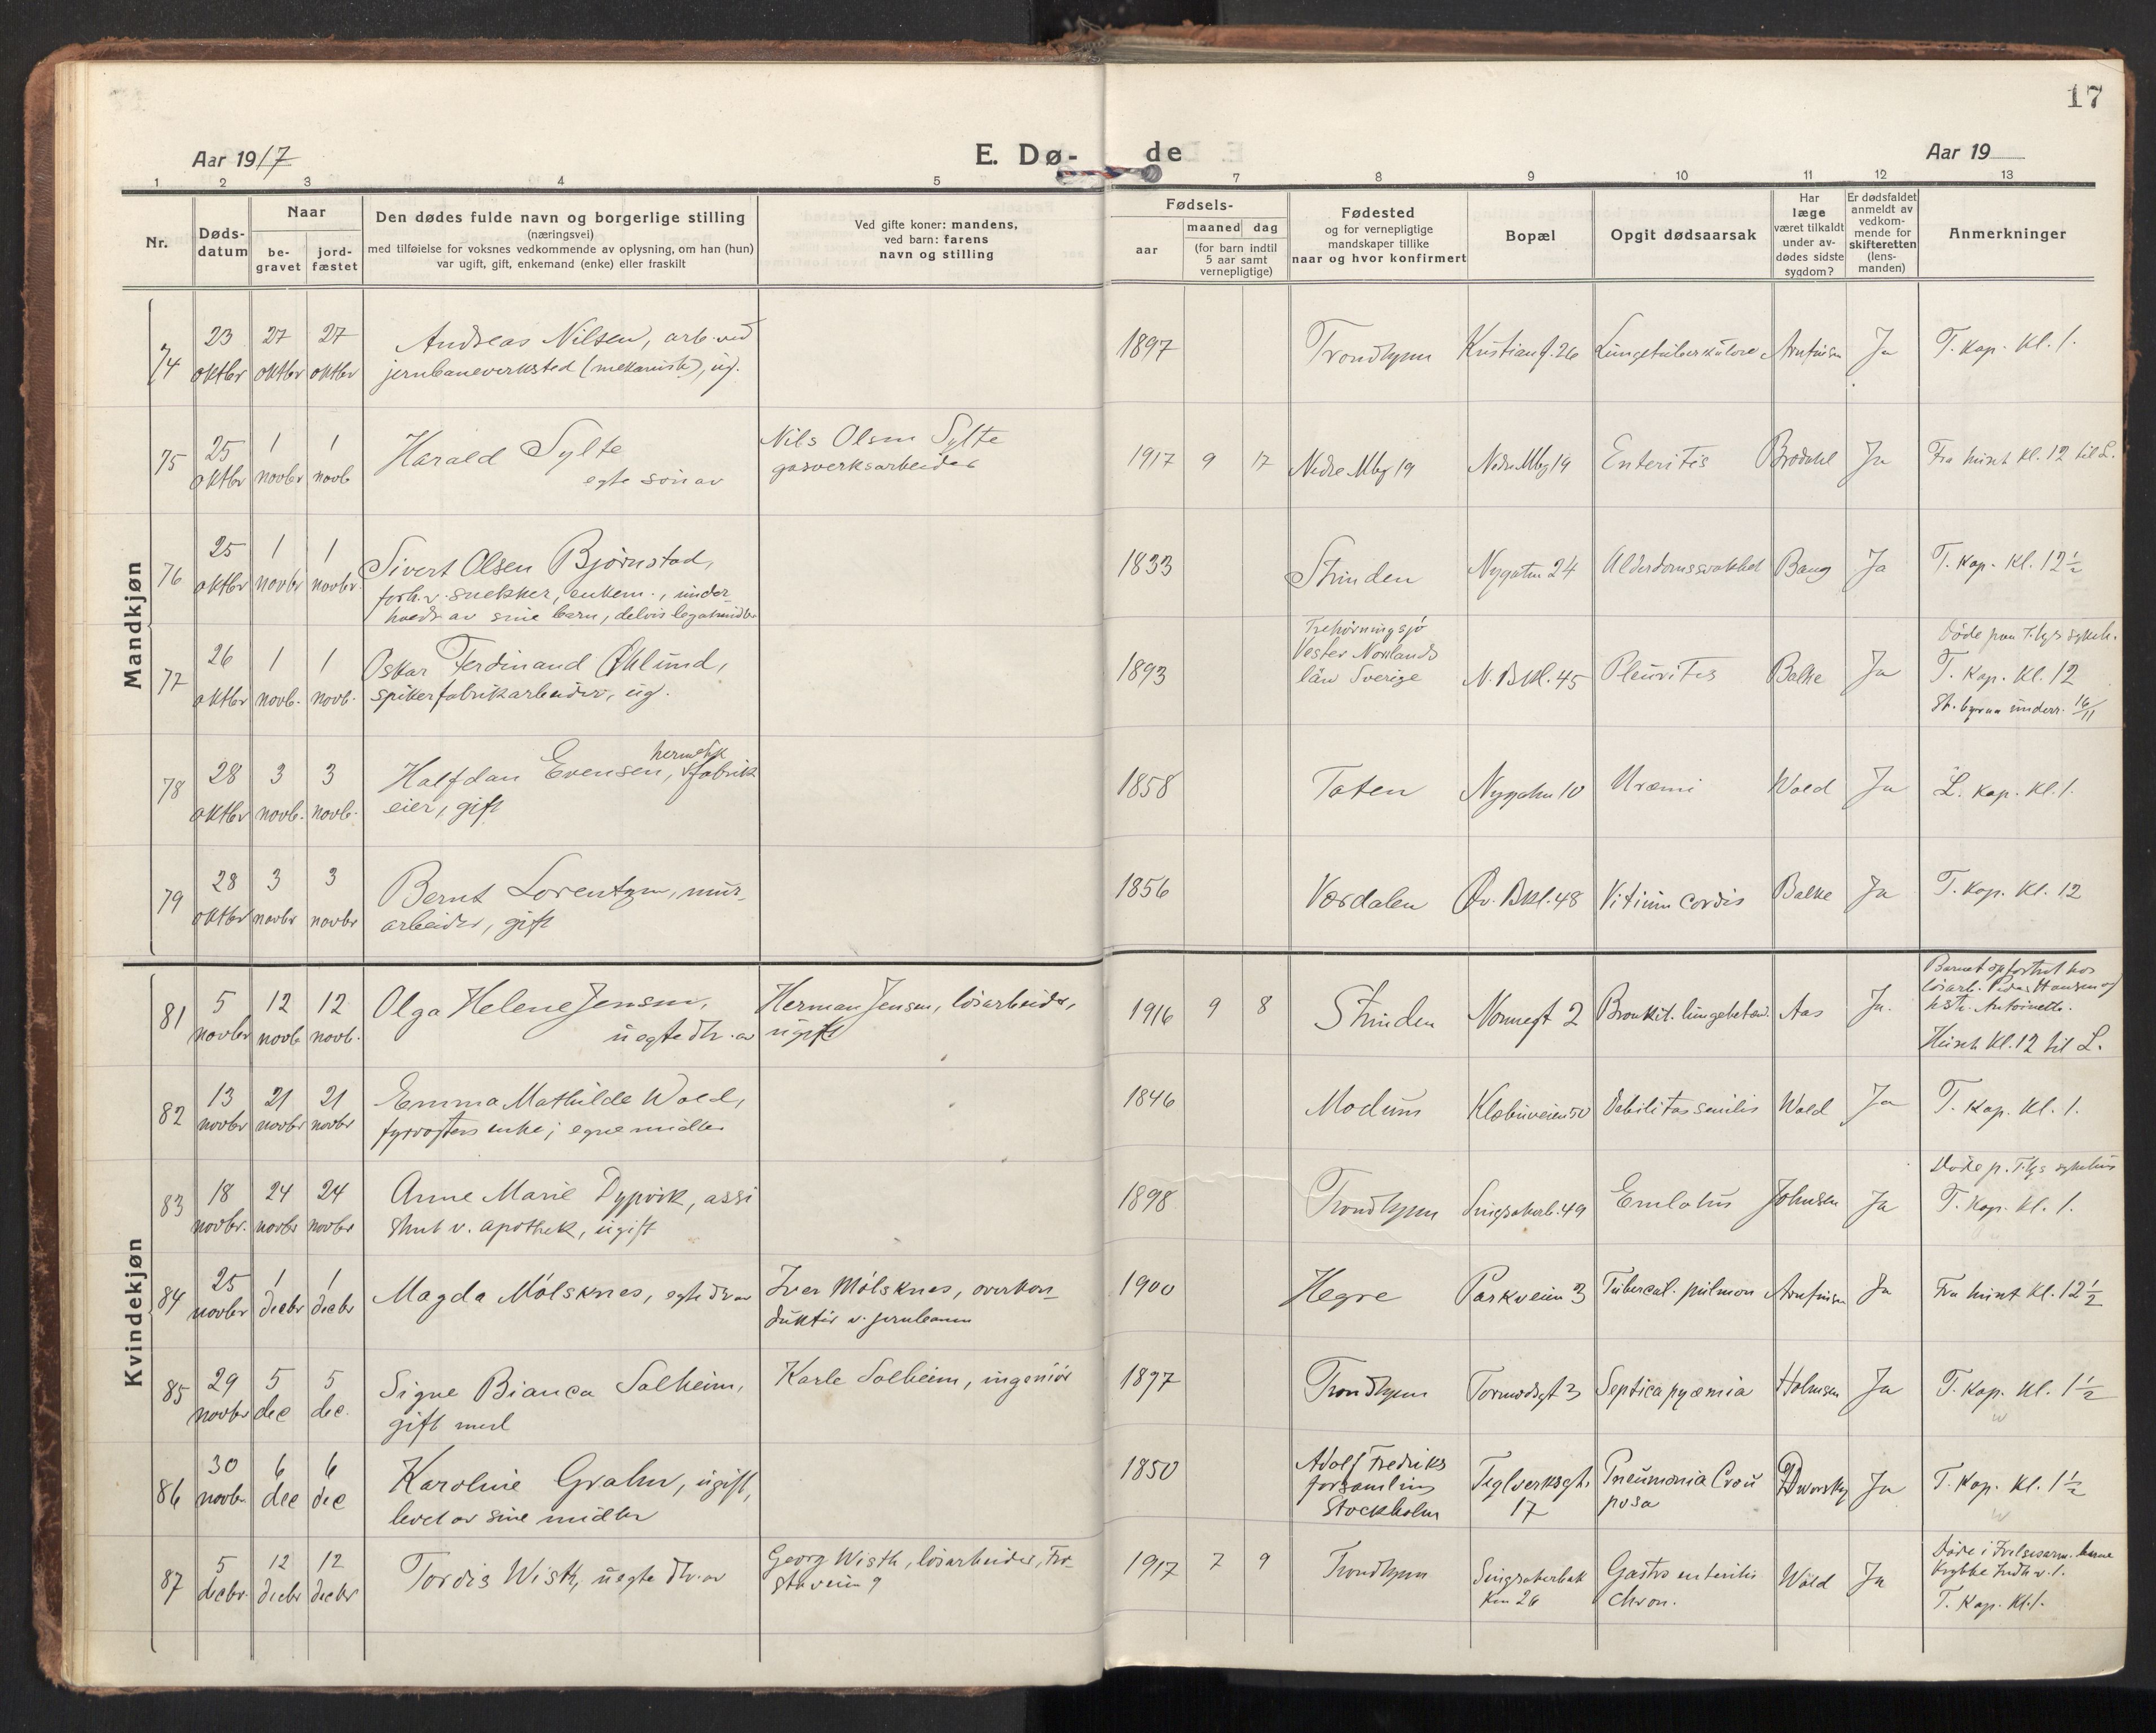 17
Aar 1917
E. Dø-
de
Aar 19
1 2 3 4 5 7 8 9 10 11 12 13
Nr.
Døds-
datum
Naar
be-
gravet
jord-
fæstet
Den dødes fulde navn og borgerlige stilling
(næringsvei)
med tilføielse for voksnes vedkommende av oplysning, om han (hun)
var ugift, gift, enkemand (enke) eller fraskilt
Ved gifte koner: mandens,
ved barn: farens
navn og stilling
Fødsels-
aar
maaned dag
(for barn indtil
5 aar samt
vernepligtige)
Fødested
og for vernepligtige
mandskaper tillike
naar og hvor konfirmert
Bopæl
Opgit dødsaarsak
Har
læge
været tilkaldt
under av-
dødes sidste
sygdom?
Er dødsfaldet
anmeldt av
vedkom-
mende for
skifteretten
(lens-
manden)
Anmerkninger
Mandkjøn
74
23 27 27
oktbr oktbr oktbr
Andreas Nilsen, arb. ved
jernbaneverksted (mekanisk), ug.
1897
Trondhjem
Kristiansf. 26
Lungetuberkulose
Arnfinsen
Ja
T. kap. kl. 1.
75
25 1 1
oktbr novbr novb
Harald Sylte
egte søn av
Nils Olsen Sylte
gasverksarbeider
1917 9 17
Nedre Mbg 19
Nedre Mbg 19
Enteritis
Brodahl
Ja
Fra huset kl. 12 til L.
76
25 1 1
oktbr novbr novbr.
Sivert Olsen Bjørnstad,
forh.v. snekker, enkem., under-
holdt av sine barn, delvis legatmidler
1833
Strinden
Nygatn 24
Alderdomssvakhet
Bang
Ja
T. kap. kl. 12 1/2
77
26 1 1
oktbr novb. novb.
Oskar Ferdinand Øhlund,
spikerfabrikarbeider, ug.
1893
Trehörningsjö
Vester Norrlands
län Sverige
N. Bkl. 45
Pleuritis
Balke
Ja
Døde paa T.hjs sykeh.
T. kap. kl. 12
underr. 16/11
78
28 3 3
oktbr novb. novb.
hermetik
Halfdan Evensen, fabrik
eier, gift
1858
Toten
Nygatn 10
Uræmi
Wold
Ja
L. kap. kl. 1.
79
28 3 3
oktbr novbr novbr
Bernt Lorentzen, mur-
arbeider, gift
1856
Værdalen
Øv. Bkl. 48
Vitium cordis
Balke
Ja
T. kap. kl. 12
Kvindekjøn
81
5 12 12
novbr novb novb.
Olga Helene Jensen,
uegte dtr. av
Herman Jensen, løsarbeider,
ugift
1916 9 8
Strinden
Nonnegt 2
Bronkit. lungebetænd.
Aas
Ja.
Barnet opfostret hos
løsarb. Peder Hansen og
hstr. Antoinette.
Huset kl. 12 til L.
82
13 21 21
novbr novbr novbr
Emma Mathilde Wold,
enke; egne midler
1846
Modum
Klæbuveien 50
Debilitas senilis
Wold
Ja
T. kap. kl. 1.
83
18 24 24
novbr. novbr novbr
Anne Marie Dypvik, assi
stent v. apothek, ugift
1898
Trondhjem
Singsakerb. 49
Embolus
Johnsen
Ja
Døde p. T.hjs sykehus
T. kap. kl. 1.
84
25 1 1
novbr decbr decbr
Magda Mólsknes, egte dtr av
Iver Mólsknes, overkon-
duktør v. jernbanen
1900
Hegre
Parkveien 3
Tubercul. pulmon
Arnfinsen
Ja
Fra huset kl. 12 1/2
85
29 5 5
novbr dec dec.
Signe Bianca Solheim,
gift med
Karle Solheim, ingeniør
1877
Trondhjem
Tormodsgt 3
Septicapyæmia
Holmsen
Ja
T. kap. kl. 1 1/2
86
30 6 6
novbr dec dec
Karoline Grahn, ugift,
levet av sine midler
1850
Adolf Fredriks
forsamling
Stockholm
Teglverksgt.
17
Pneumonia Crou
posa
Dworsky
Ja
T. kap. kl. 1 1/2
87
5 12 12
decbr. decbr decbr
Tordis Wisth, uegte dtr. av
Georg Wisth, løsarbeider, Fro-
staveien 9
1917 7 9
Trondhjem
Singsakerbak
ken 26
Gastro enteritis
chron.
Wold
Ja
Døde i Frelsesarm. barne
krybbe
T. kap. kl. 1.